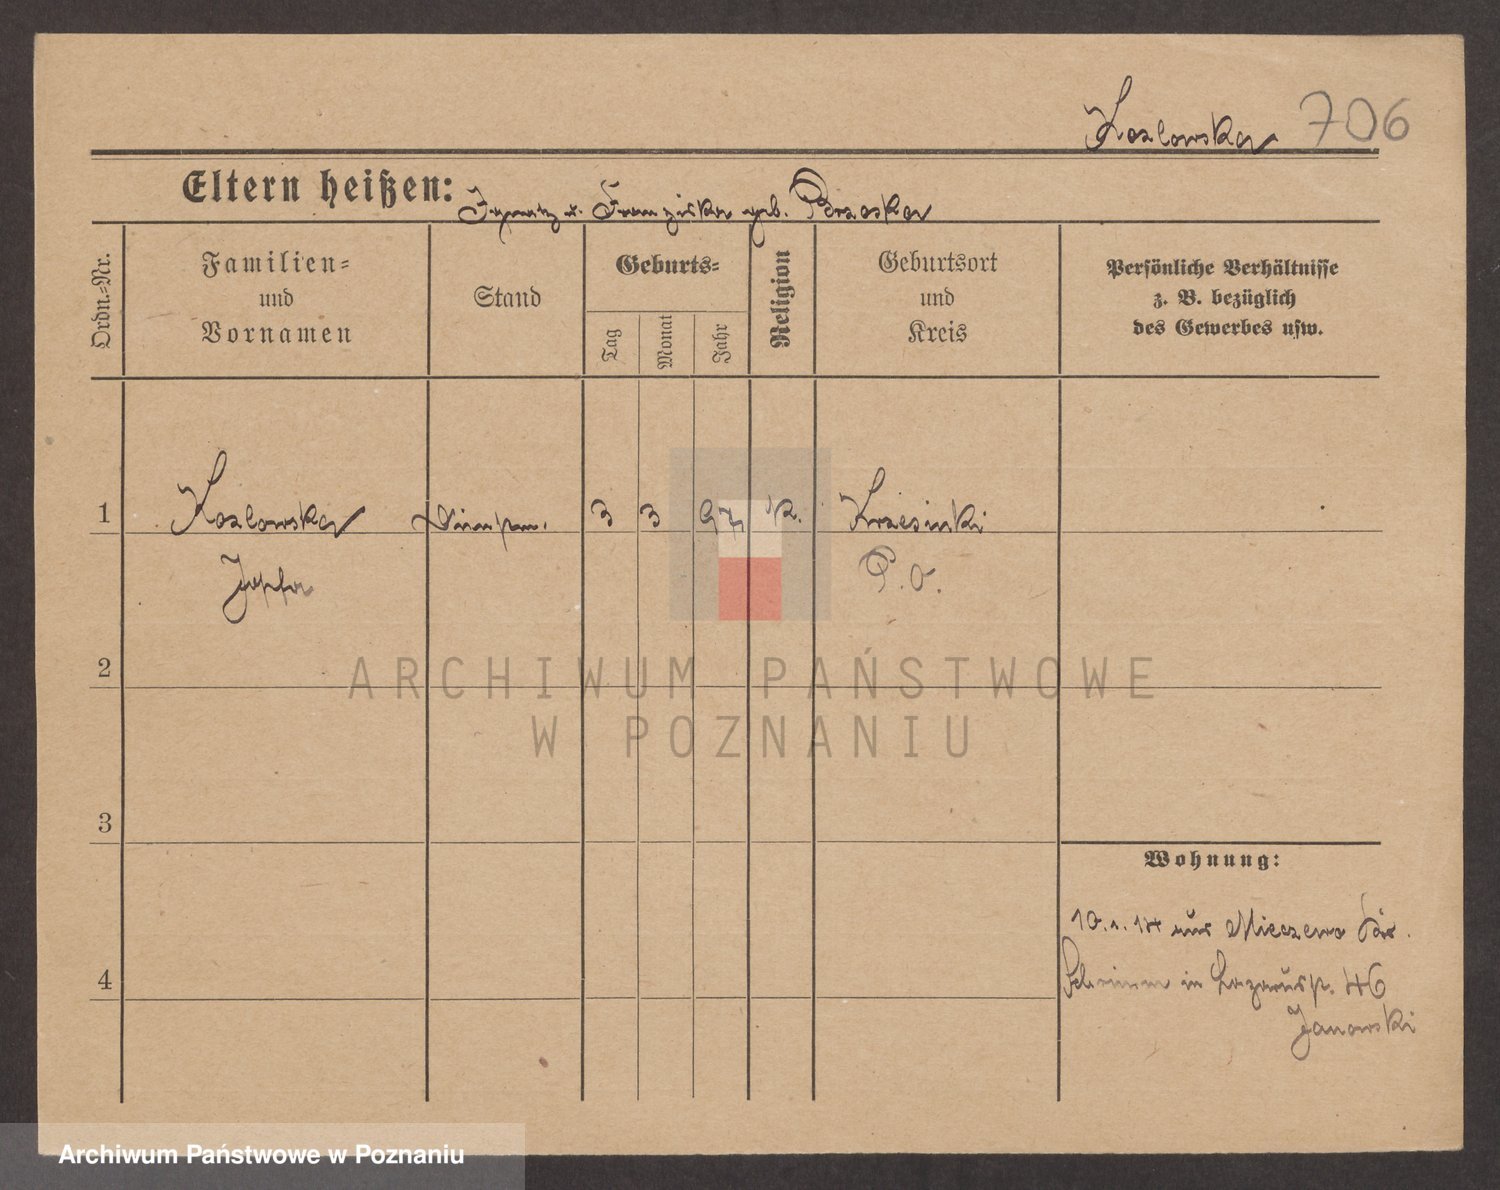 Kozlowska 706
Eltern heißen: Ignatz u. Franziska geb. Brzoska
Ordn.-Nr.
Familien- und Vornamen
Stand
Geburts-
Tag
Monat
Jahr
Religion
Geburtsort und Kreis
Persönliche Verhältnisse
z. B. bezüglich
des Gewerbes usw.
1 Kozlowska 3 3 97 K. Krzesinki
P. O.
2
3
4
Wohnung:
10.1.14 aus Mieczewo
in Lazarusstr. 46
Janowski
ARCHIWUM PAŃSTWOWE
W POZNANIU
Archiwum Państwowe w Poznaniu